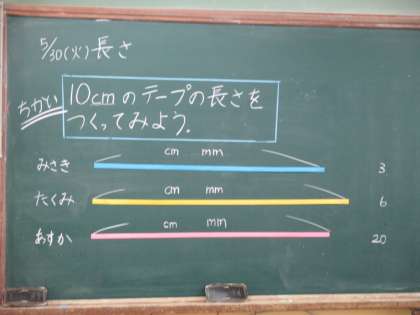 5/30(火)長さ
ちかい 10cmのテープの長さを
つくってみよう.
みさき cm mm 3
たくみ cm mm 6
あすか cm mm 20